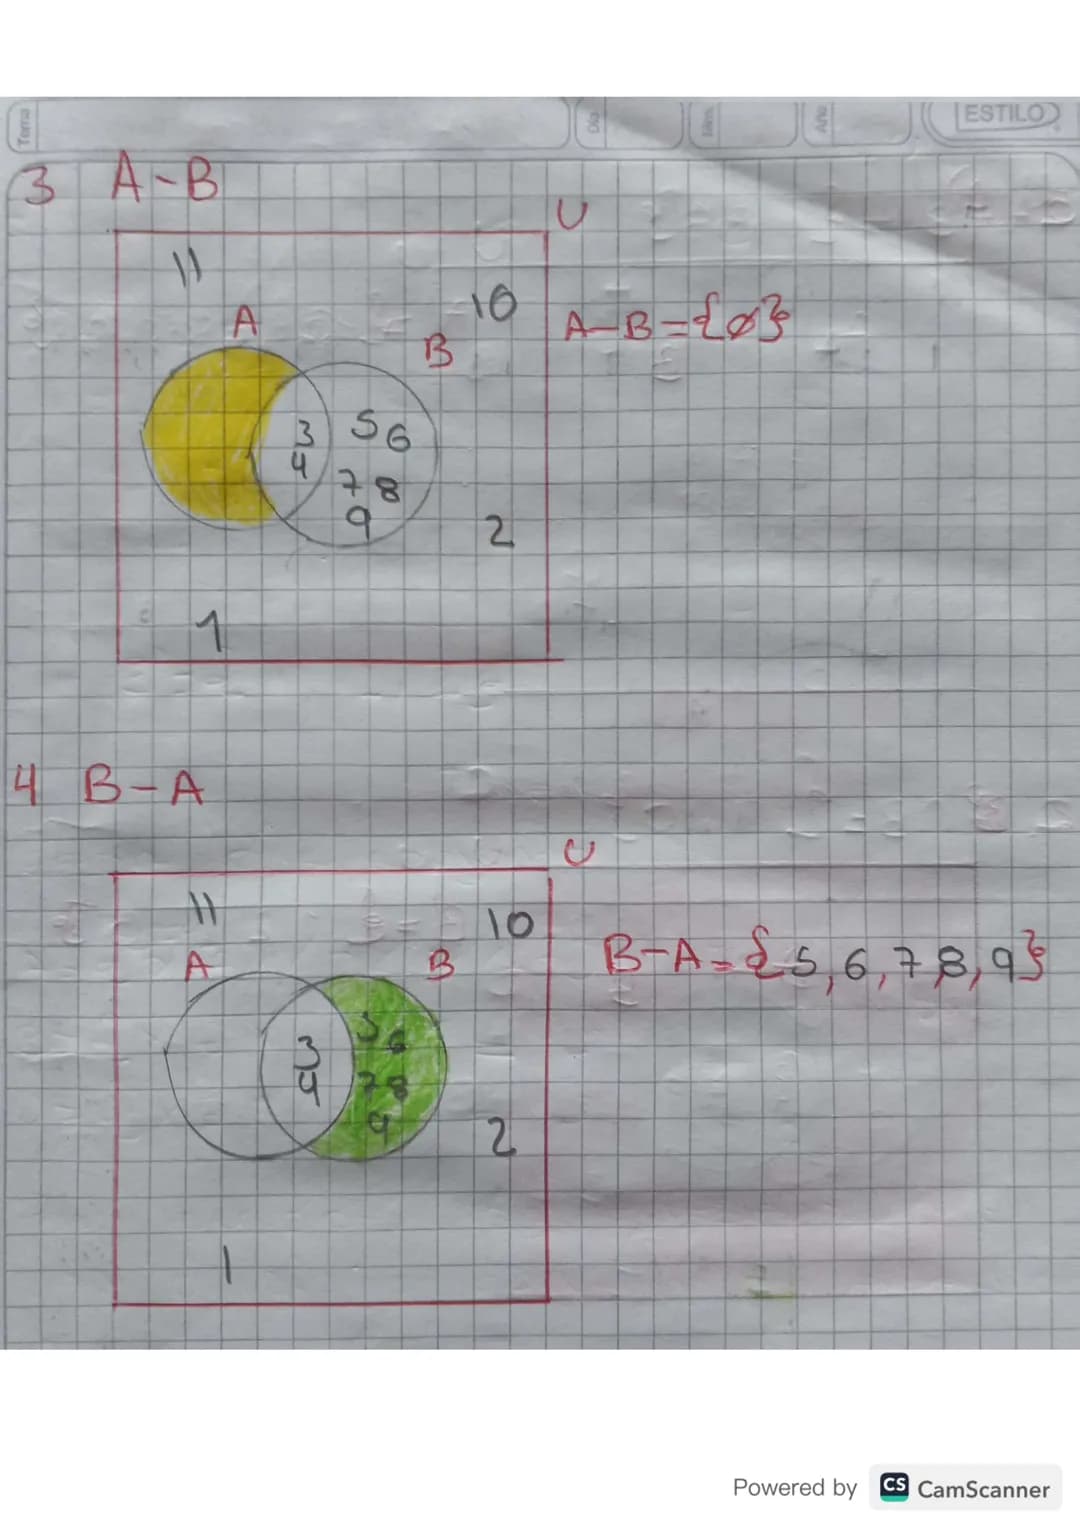 Tema
Día
Mes
Año
ESTILO
3 A-B
U
11
10
A
B
A-B={ø}
3
4
5 6
7 8
9
2
1
4 B-A
U
11
10
A
B
B-A={5,6,7,8,9}
3
4
5 6
7 8
9
2
1
Powered by CS CamScanner